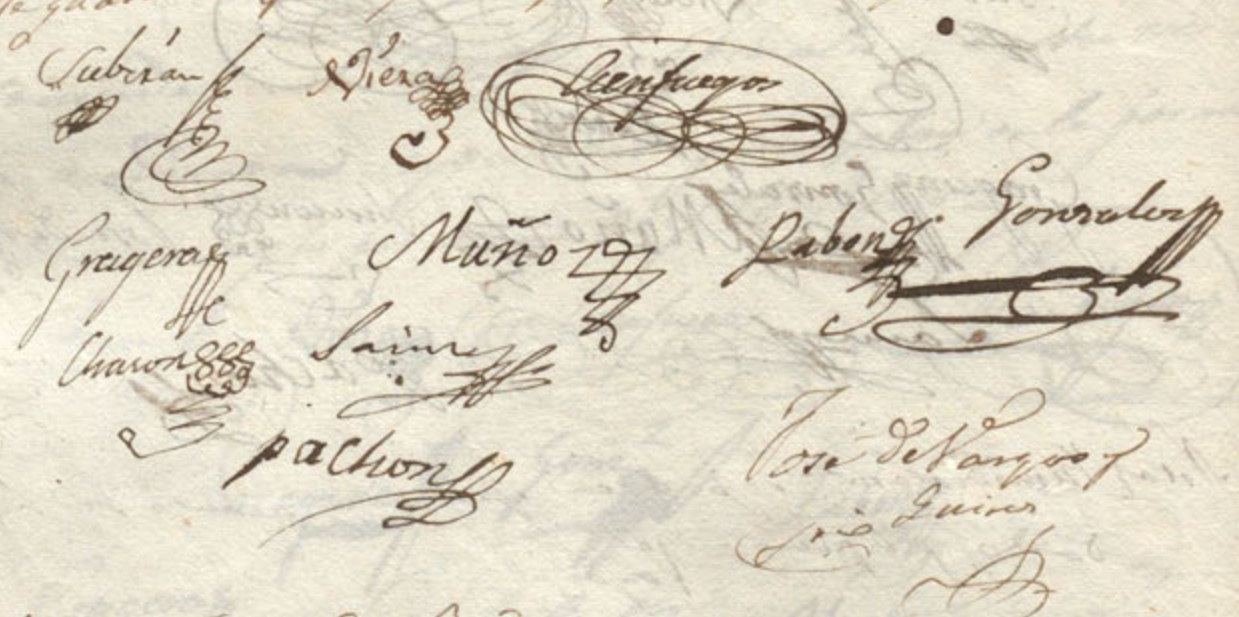 Subirán Viera Cienfuegos
Gragera Muñoz Pabon Gonzalez
Charon Sainz
pachon
José de Vargas y